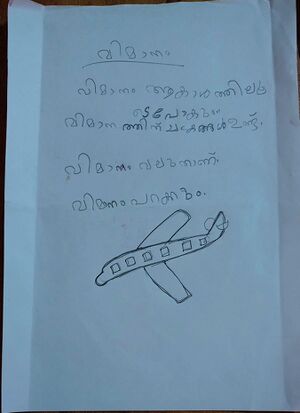 വിമാനം
വിമാനം ആകാശത്തിലൂ
ടെ പോകും.
വിമാനത്തിന് ചിറകുകൾ ഉണ്ട്.
വിമാനം വലുതാണ്.
വിമാനം പറക്കും.